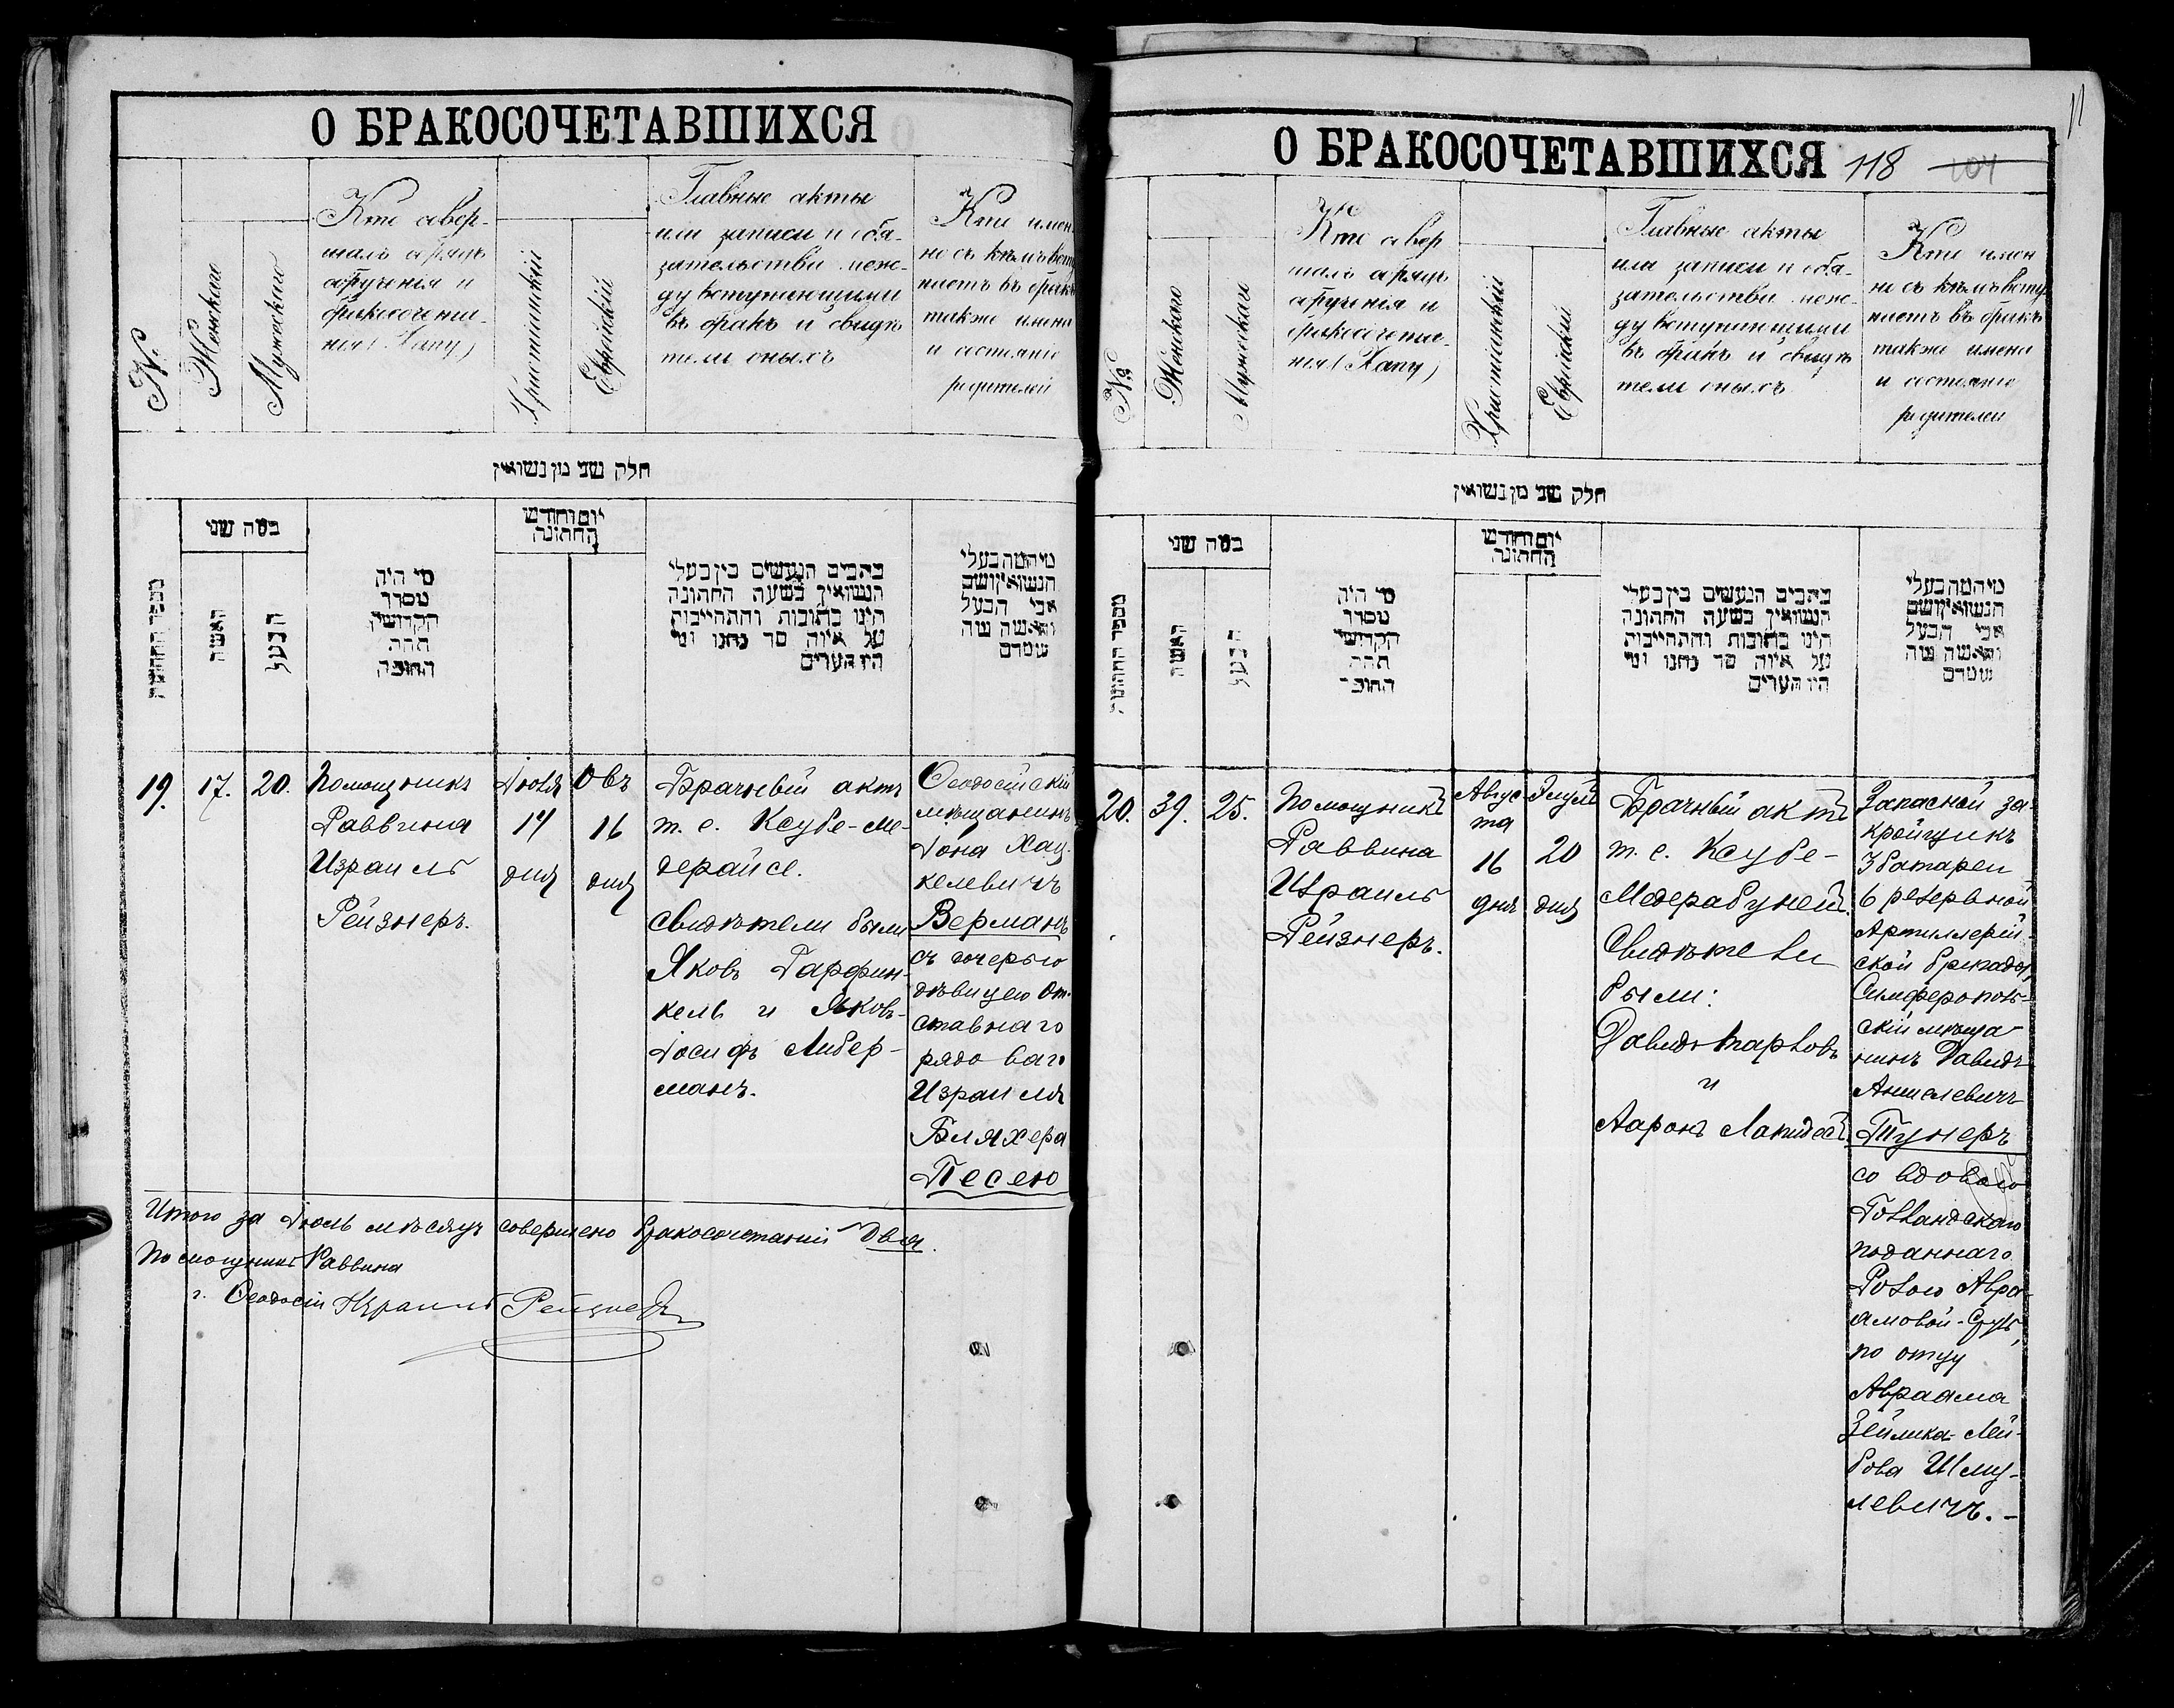 О БРАКОСОЧЕТАВШИХСЯ
№
Женскаго
Мужескаго
Кто совер-
шалъ обрядъ
обрученія и
бракосочета-
нія (Хапу)
Христіанскій
Еврейскій
Главные акты
или записи и обя-
зательства меж-
ду вступающими
въ бракъ и свидѣ
тели оныхъ
Кто имен
но съ кѣмъ всту
паетъ въ бракъ
также имена
и состояніе
родителей
חלק שני מן נשואין
מספר החתונות
כמה שני
האשה
הבעל
מי היה
מסדר
הקדושין
תחת
החופה
יום וחודש
החתונה
כתבים הנעשים בין בעלי
הנשואין בשעה החתונה
היינו כתובות והתחייבות
על איזה סך נתנו ומי
היו העדים
מי המה בעלי
הנשואין ושם
אבי הבעל
והאשה מה
מעמדם
19.
17.
20.
Помощникъ
Раввина
Израиль
Рейзнеръ.
Іюля
14
дня
Овъ
16
дня
Брачный актъ
т. е. Ксубе-Ме-
дерайсе.
Свидѣтели были
Яковъ Гарфин-
кель и Яковъ-
Іосифъ Либер-
манъ.
Ѳеодосійскій
мѣщанинъ
Іона Хац-
келевичъ
Верманъ
съ дочерью
дѣвицею От-
ставнаго
рядоваго
Израиля
Бляхера
Песею
Итого за Іюль мѣсяцъ совершено бракосочетаній Два.
Помощникъ Раввина
г. Ѳеодосіи Израиль Рейзнеръ
О БРАКОСОЧЕТАВШИХСЯ 118 104
11
№
Женскаго
Мужескаго
Кто совер
шалъ обрядъ
обрученія и
бракосочета-
нія (Хапу)
Христіанскій
Еврейскій
Главные акты
или записи и обя-
зательства меж-
ду вступающими
въ бракъ и свидѣ
тели оныхъ
Кто имен
но съ кѣмъ всту
паетъ въ бракъ
также имена
и состояніе
родителей
חלק שני מן נשואין
מספר החתונות
כמה שני
האשה
הבעל
מי היה
מסדר
הקדושין
תחת
החופה
יום וחודש
החתונה
כתבים הנעשים בין בעלי
הנשואין בשעה החתונה
היינו כתובות והתחייבות
על איזה סך נתנו ומי
היו העדים
מי המה בעלי
הנשואין ושם
אבי הבעל
והאשה מה
מעמדם
20.
39.
25.
Помощникъ
Раввина
Израиль
Рейзнеръ.
Авгус-
та
16
дня
Элулъ
20
дня
Брачный актъ
т. е. Ксубе-
Медерабунейсъ.
Свидѣтели
были:
Давидъ
и
Ааронъ Лапидесъ.
Запасной за-
кройщикъ
3 батареи
6 резервной
Артиллерій-
ской бригады,
Симферополь-
скій мѣща-
нинъ Давидъ
Аншелевичъ
Тунеръ
со вдовою
Голландскаго
поданнаго
Розою Авра-
амовой-
по отцу
Авраама
Зейлика-Лей-
бова Шму-
левичъ.-